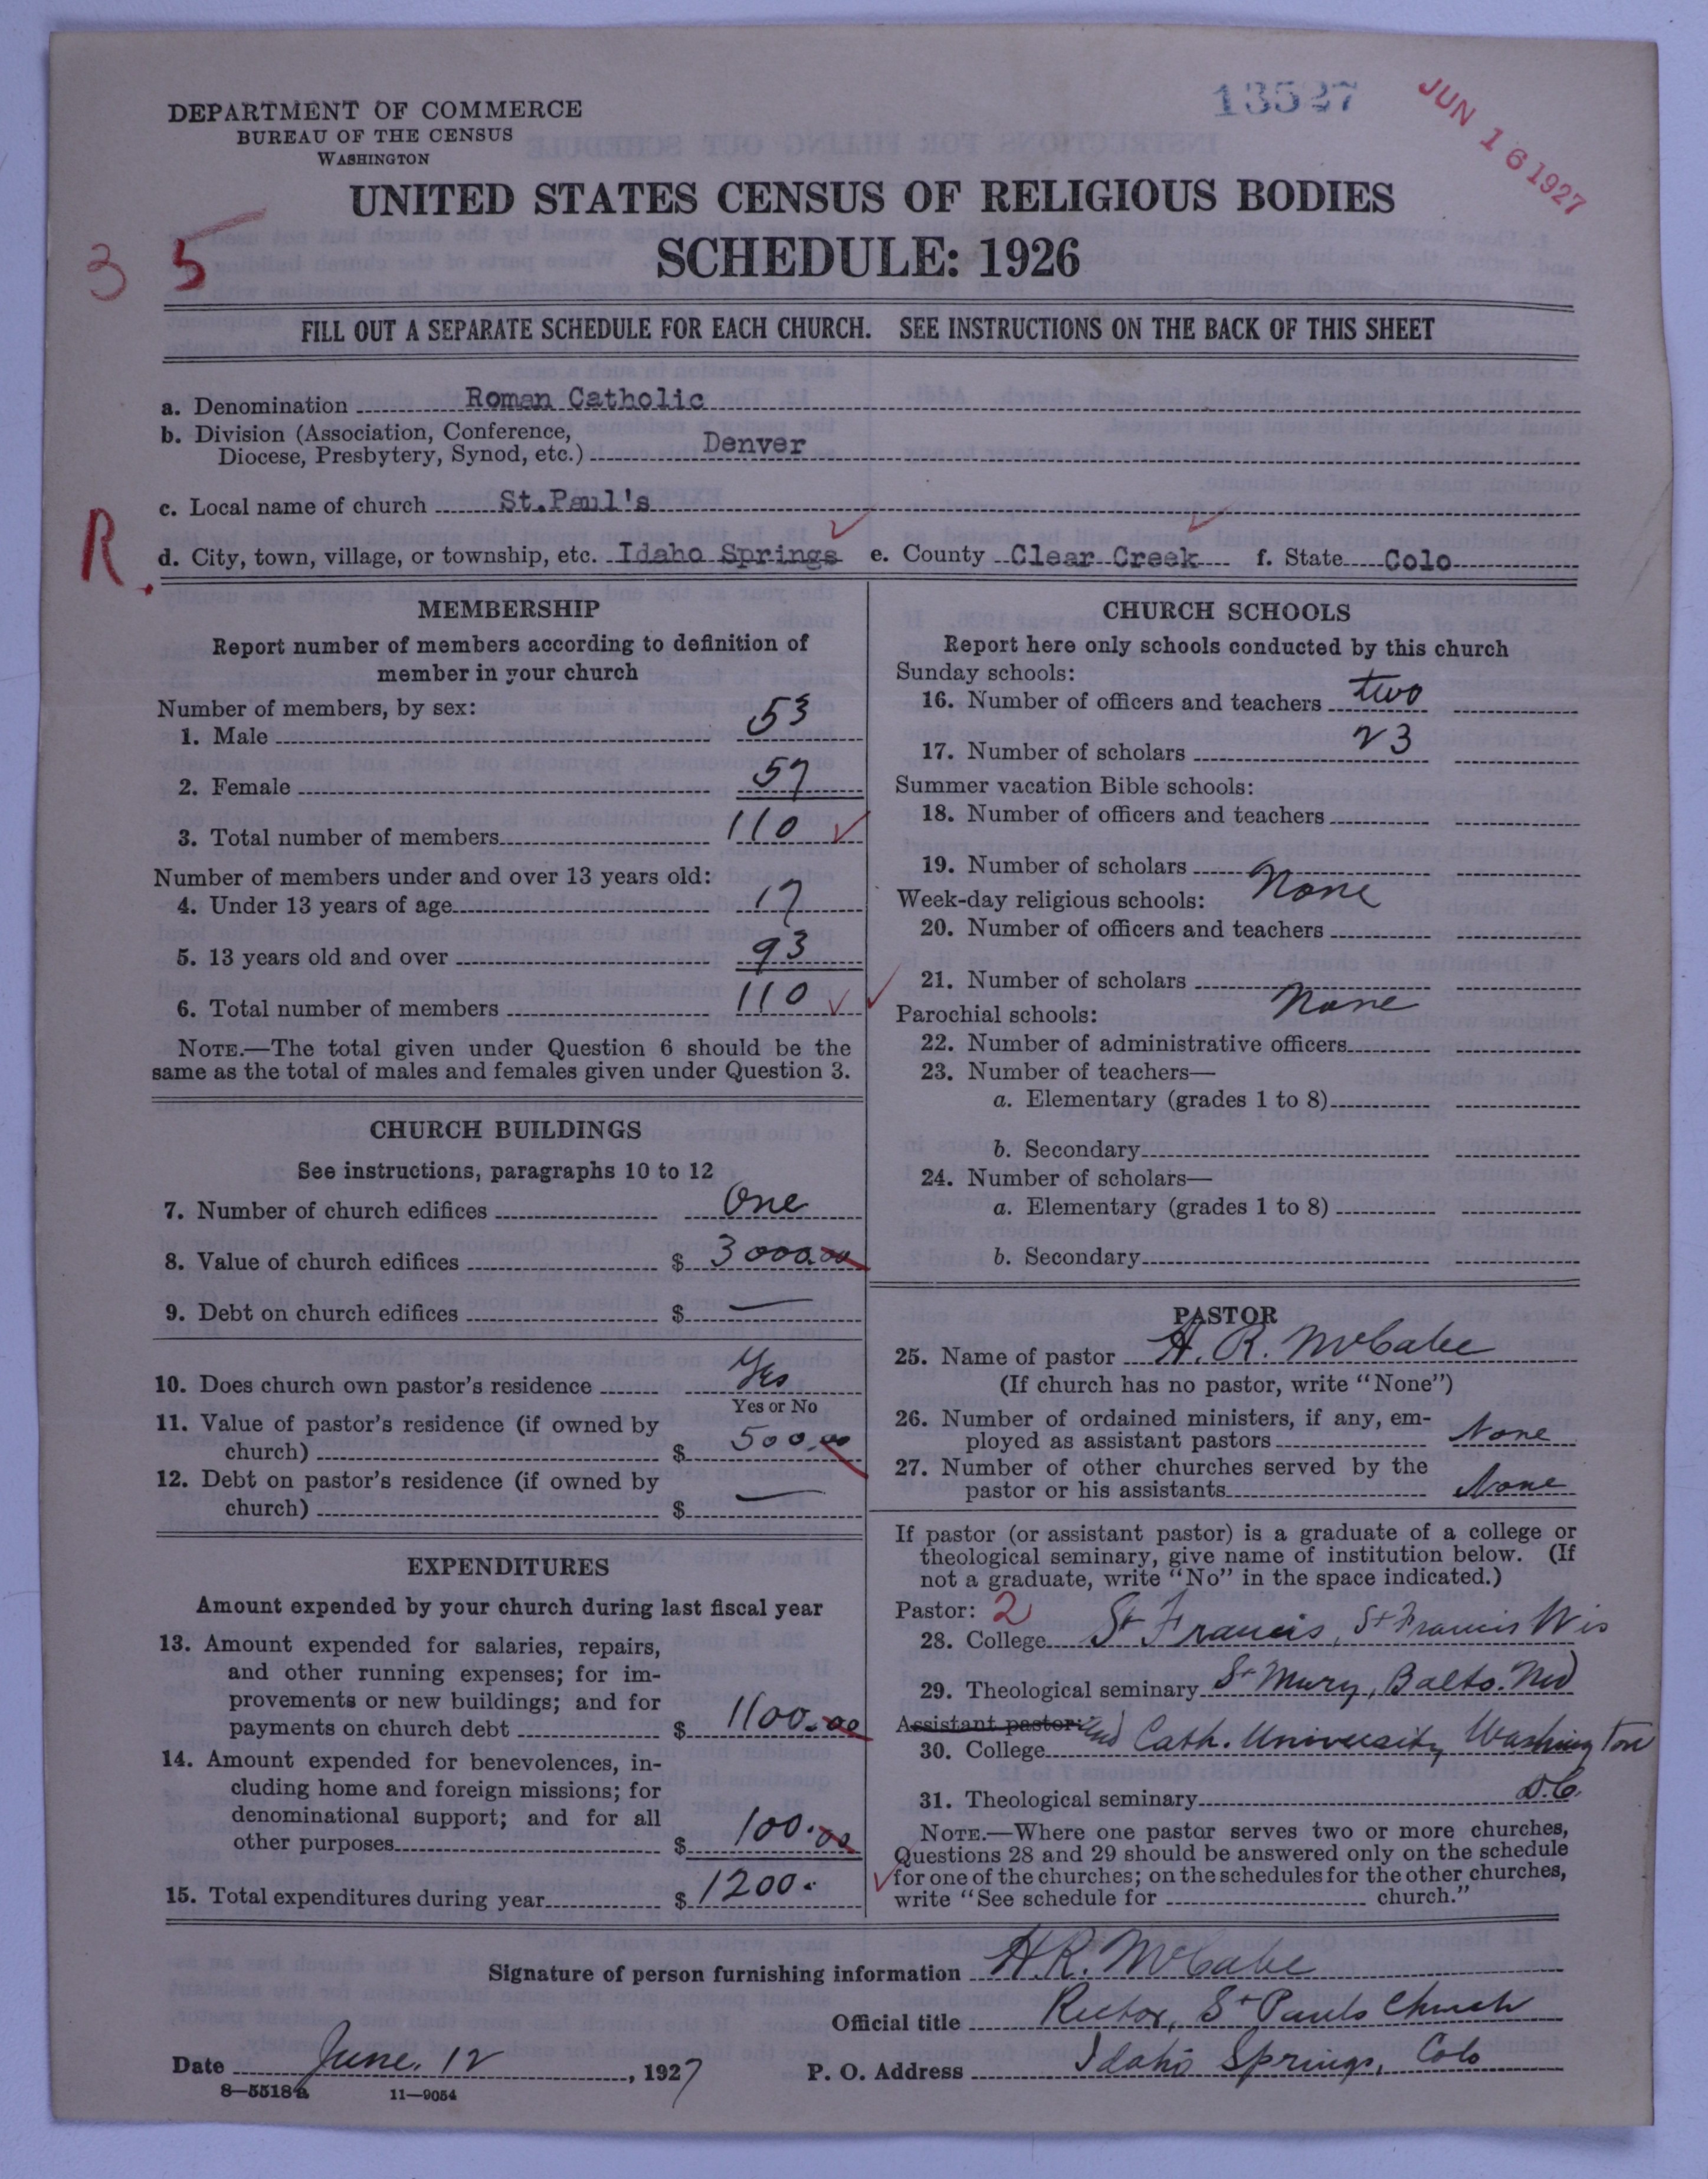 13527
JUN 16 1927
DEPARTMENT OF COMMERCE
BUREAU OF THE CENSUS
WASHINGTON
UNITED STATES CENSUS OF RELIGIOUS BODIES
SCHEDULE: 1926
3 5
FILL OUT A SEPARATE SCHEDULE FOR EACH CHURCH. SEE INSTRUCTIONS ON THE BACK OF THIS SHEET
a. Denomination Roman Catholic
b. Division (Association, Conference,
Diocese, Presbytery, Synod, etc.) Denver
c. Local name of church St.Paul's
R.
d. City, town, village, or township, etc. Idaho Springs e. County Clear Creek f. State Colo
MEMBERSHIP
Report number of members according to definition of
member in your church
Number of members, by sex:
1. Male 53
2. Female 57
3. Total number of members 110
Number of members under and over 13 years old:
4. Under 13 years of age 17
5. 13 years old and over 93
6. Total number of members 110
NOTE.—The total given under Question 6 should be the
same as the total of males and females given under Question 3.
CHURCH BUILDINGS
See instructions, paragraphs 10 to 12
7. Number of church edifices One
8. Value of church edifices $ 3000.00
9. Debt on church edifices $ —
10. Does church own pastor's residence Yes
Yes or No
11. Value of pastor's residence (if owned by
church) $ 500.00
12. Debt on pastor's residence (if owned by
church) $ —
EXPENDITURES
Amount expended by your church during last fiscal year
13. Amount expended for salaries, repairs,
and other running expenses; for im-
provements or new buildings; and for
payments on church debt $ 1100.00
14. Amount expended for benevolences, in-
cluding home and foreign missions; for
denominational support; and for all
other purposes $ 100.00
15. Total expenditures during year $ 1200.
CHURCH SCHOOLS
Report here only schools conducted by this church
Sunday schools:
16. Number of officers and teachers two
17. Number of scholars 23
Summer vacation Bible schools:
18. Number of officers and teachers
19. Number of scholars None
Week-day religious schools:
20. Number of officers and teachers
21. Number of scholars None
Parochial schools:
22. Number of administrative officers
23. Number of teachers—
a. Elementary (grades 1 to 8)
b. Secondary
24. Number of scholars—
a. Elementary (grades 1 to 8)
b. Secondary
PASTOR
25. Name of pastor H. R. McCabe
(If church has no pastor, write "None")
26. Number of ordained ministers, if any, em-
ployed as assistant pastors None
27. Number of other churches served by the
pastor or his assistants None
If pastor (or assistant pastor) is a graduate of a college or
theological seminary, give name of institution below. (If
not a graduate, write "No" in the space indicated.)
Pastor: 2
28. College St Francis, St Francis Wis
29. Theological seminary St Mary, Balto. Md
Assistant pastor: and
30. College Cath. University Washington
31. Theological seminary D.C.
NOTE.—Where one pastor serves two or more churches,
Questions 28 and 29 should be answered only on the schedule
for one of the churches; on the schedules for the other churches,
write "See schedule for church."
Signature of person furnishing information H.R. McCabe
Official title Rector, St Pauls Church
Date June. 12, 1927 P. O. Address Idaho Springs, Colo
8—5518a 11—9054